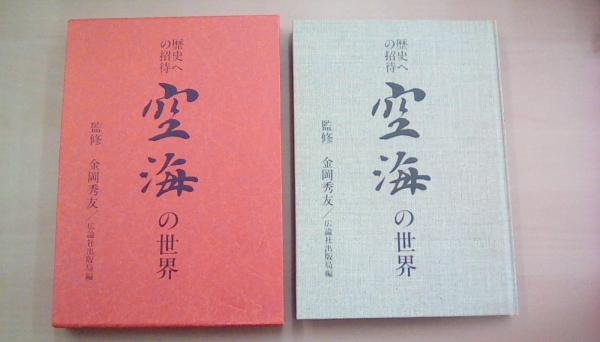 歴史へ
の招待
空海の世界
監修 金岡秀友／広論社出版局編
歴史へ
の招待
空海の世界
監修 金岡秀友／広論社出版局編